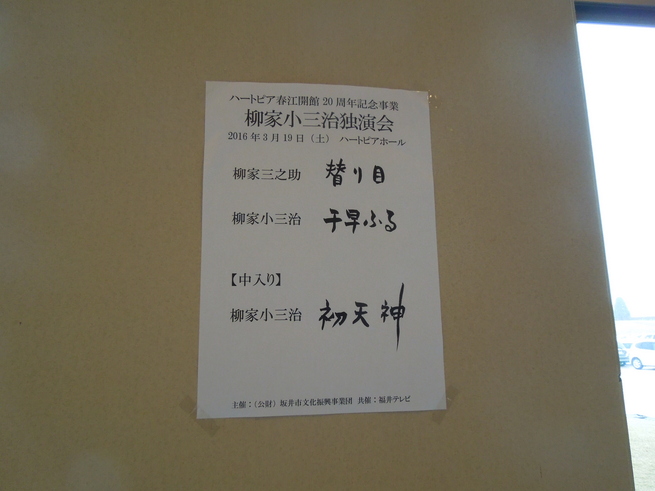 ハートピア春江開館 20 周年記念事業
柳家小三治独演会
2016 年 3 月 19 日（土） ハートピアホール
柳家三之助 替り目
柳家小三治 千早ふる
【中入り】
柳家小三治 初天神
主催：（公財）坂井市文化振興事業団 共催：福井テレビ